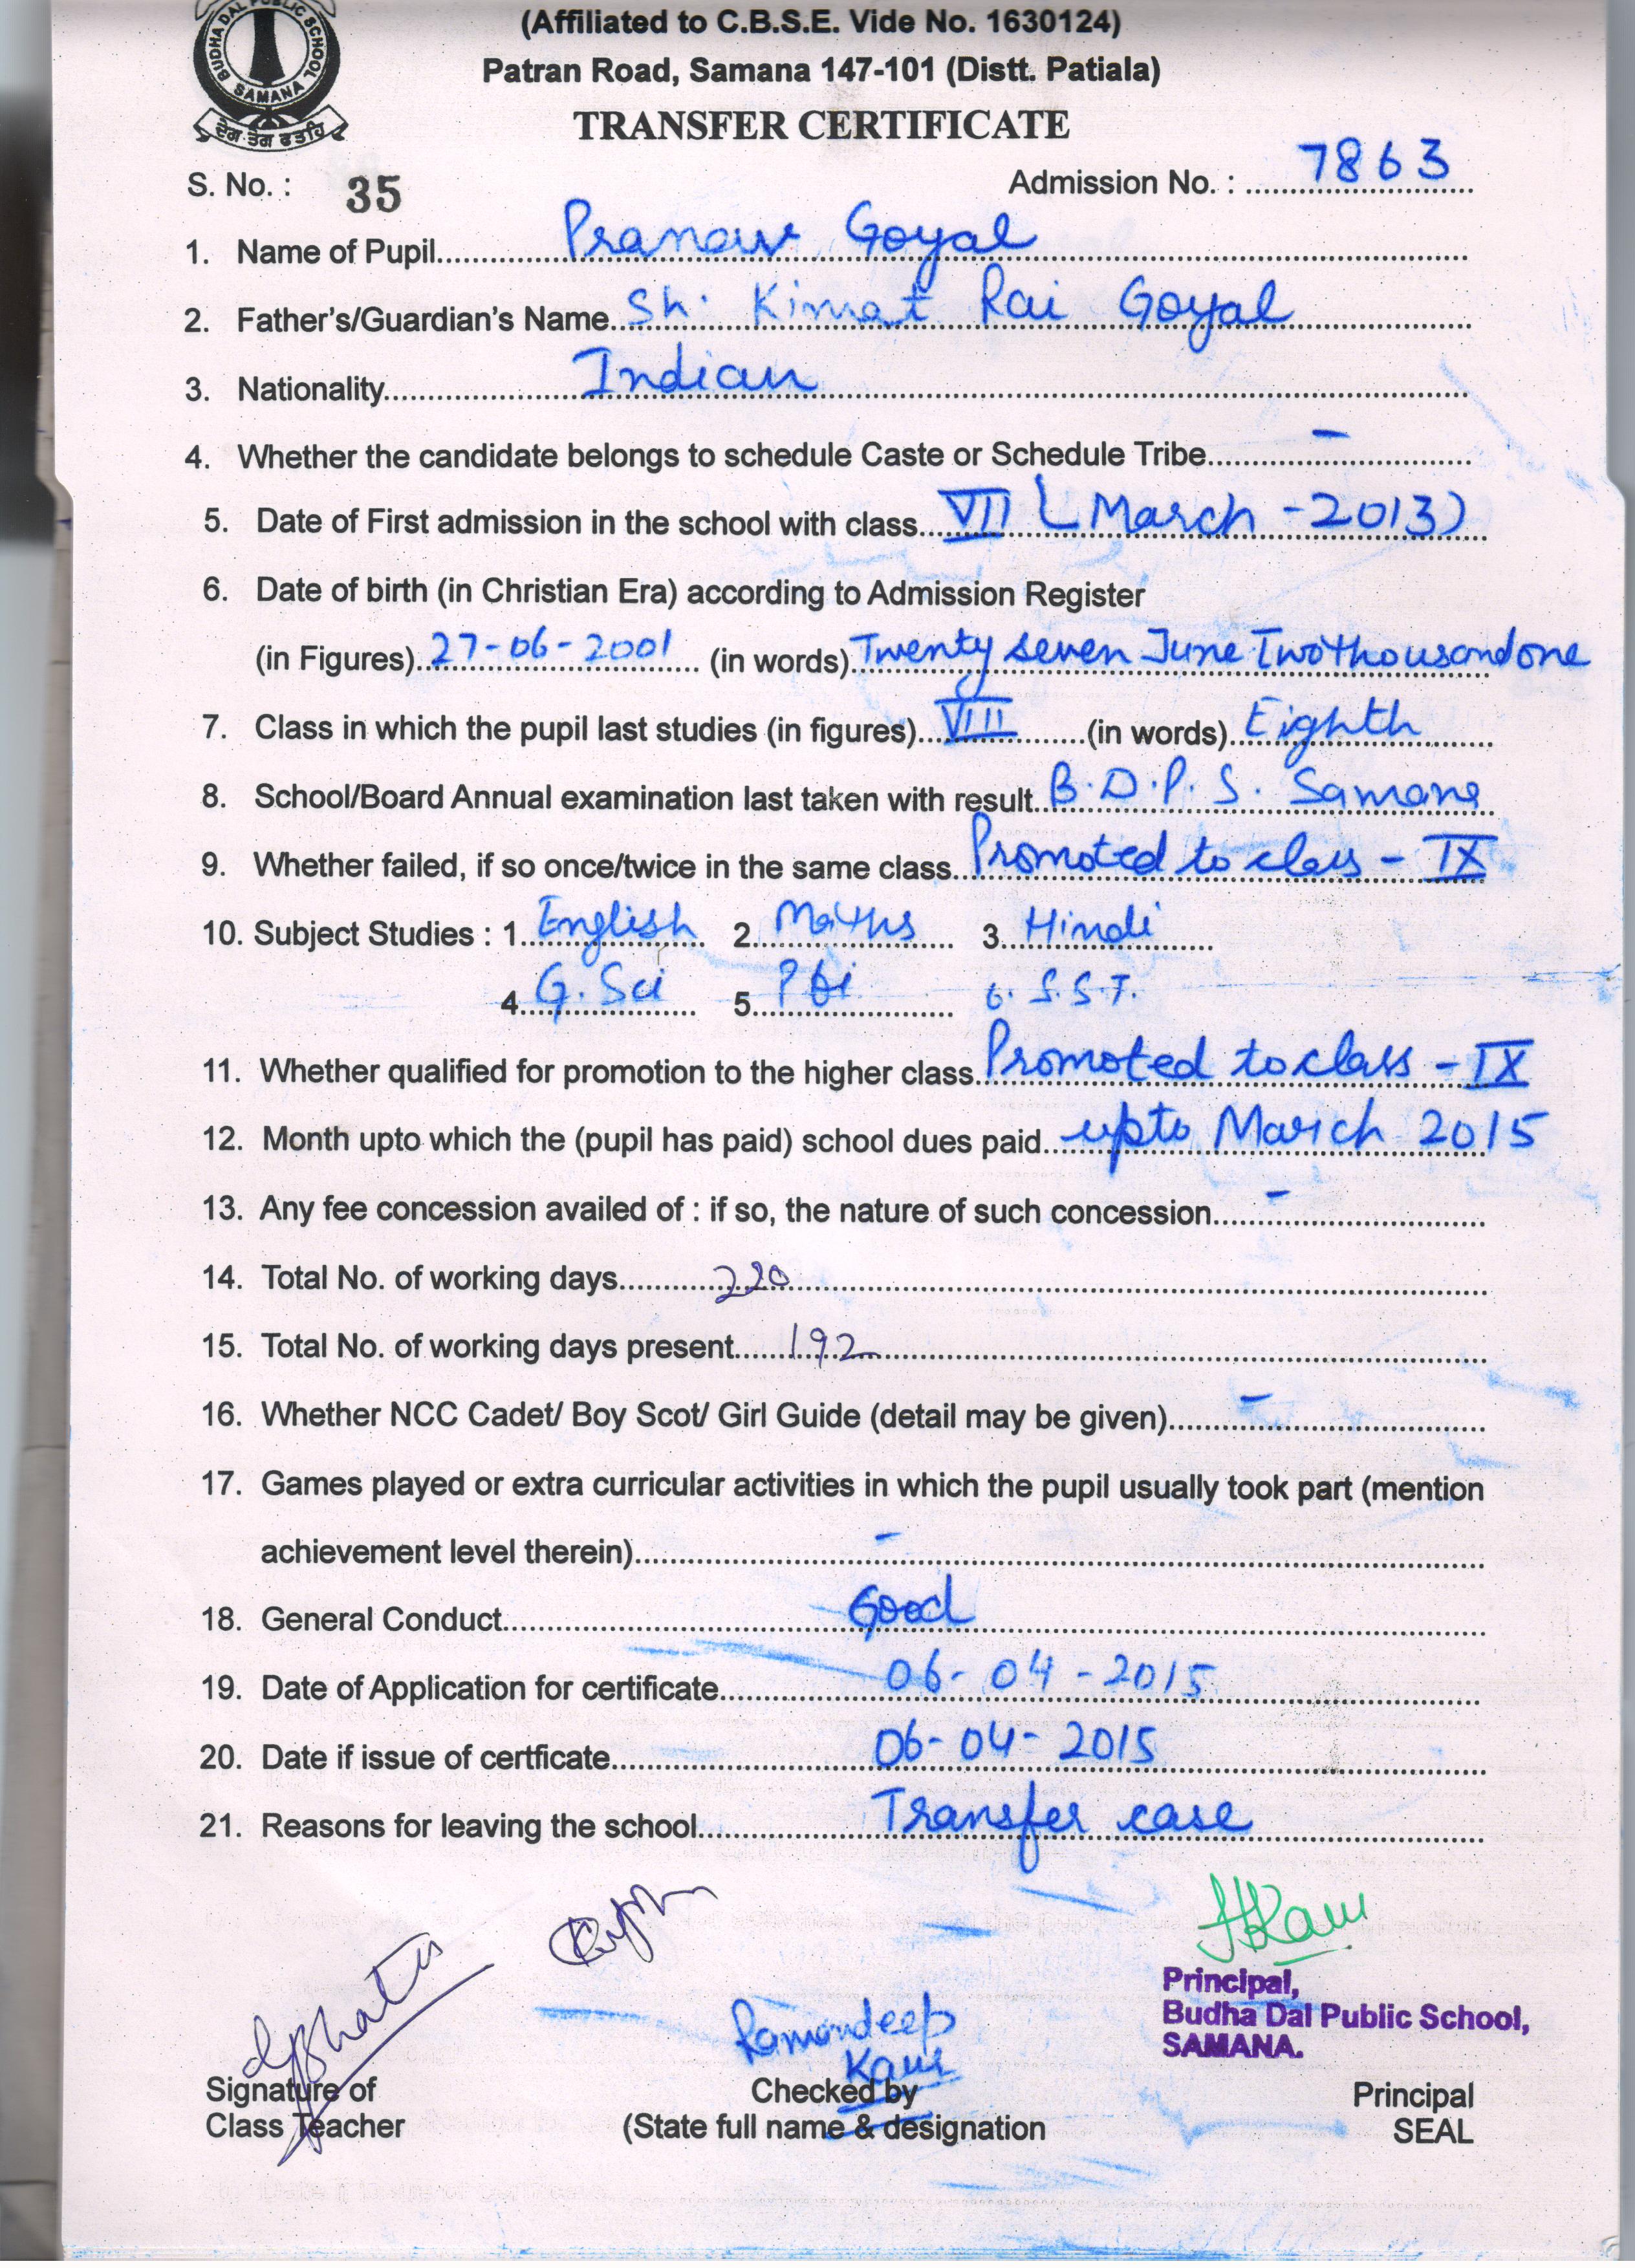 BUDHA DAL PUBLIC SCHOOL
SAMANA
ਦੇਗ ਤੇਗ ਫਤਹਿ
(Affiliated to C.B.S.E. Vide No. 1630124)
Patran Road, Samana 147-101 (Distt. Patiala)
TRANSFER CERTIFICATE
S. No. : 35 Admission No. : 7863
1. Name of Pupil Pranav Goyal
2. Father's/Guardian's Name Sh. Kimat Rai Goyal
3. Nationality Indian
4. Whether the candidate belongs to schedule Caste or Schedule Tribe -
5. Date of First admission in the school with class VII (March -2013)
6. Date of birth (in Christian Era) according to Admission Register
(in Figures) 27-06-2001 (in words) Twenty seven June Two thousand one
7. Class in which the pupil last studies (in figures) VIII (in words) Eighth
8. School/Board Annual examination last taken with result B.D.P.S. Samana
9. Whether failed, if so once/twice in the same class Promoted to class - IX
10. Subject Studies : 1. English 2. Maths 3. Hindi
4. G. Sci 5. Pbi 6. S.S.T.
11. Whether qualified for promotion to the higher class Promoted to class - IX
12. Month upto which the (pupil has paid) school dues paid upto March 2015
13. Any fee concession availed of : if so, the nature of such concession -
14. Total No. of working days 220
15. Total No. of working days present 192
16. Whether NCC Cadet/ Boy Scot/ Girl Guide (detail may be given) -
17. Games played or extra curricular activities in which the pupil usually took part (mention
achievement level therein) -
18. General Conduct Good
19. Date of Application for certificate 06-04-2015
20. Date if issue of certficate 06-04-2015
21. Reasons for leaving the school Transfer case
Principal,
Budha Dal Public School,
SAMANA.
Ramandeep
Kaur
Signature of Checked by Principal
Class Teacher (State full name & designation SEAL